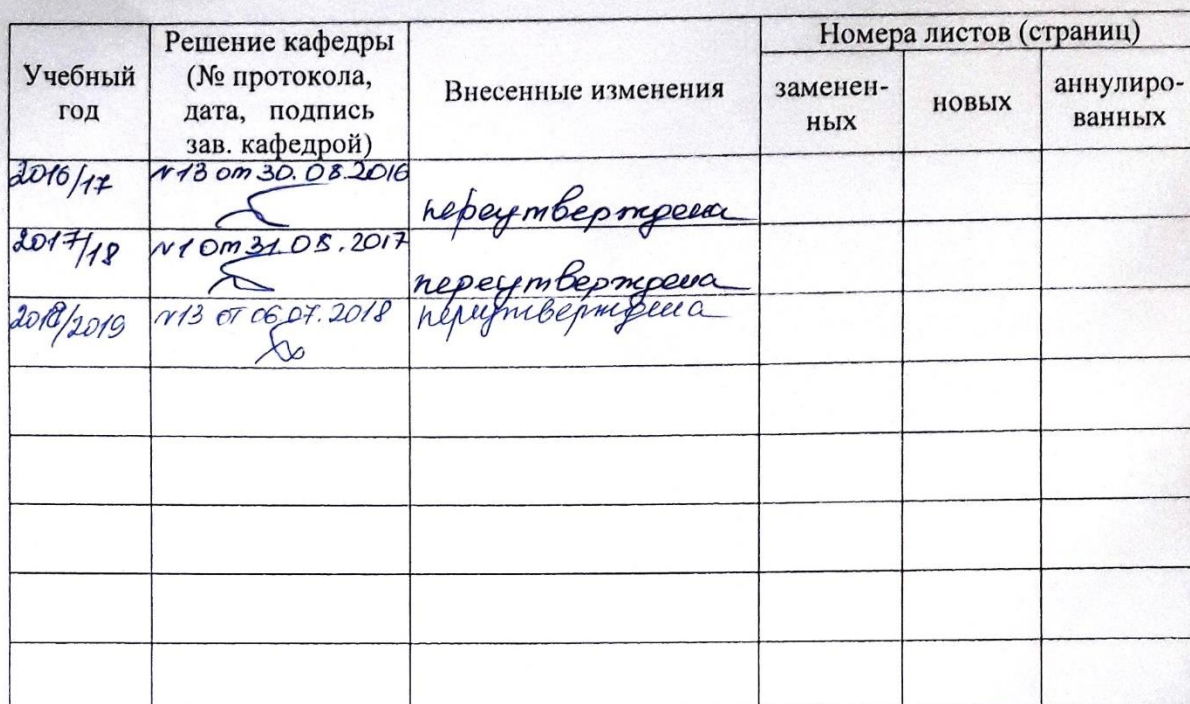 Учебный
год
Решение кафедры
(№ протокола,
дата, подпись
зав. кафедрой)
Внесенные изменения
Номера листов (страниц)
заменен-
ных
новых
аннулиро-
ванных
2016/17
№13 от 30.08.2016
переутверждена
2017/18
№1 от 31.08.2017
переутверждена
2018/2019
№13 от 06.07.2018
переутверждена